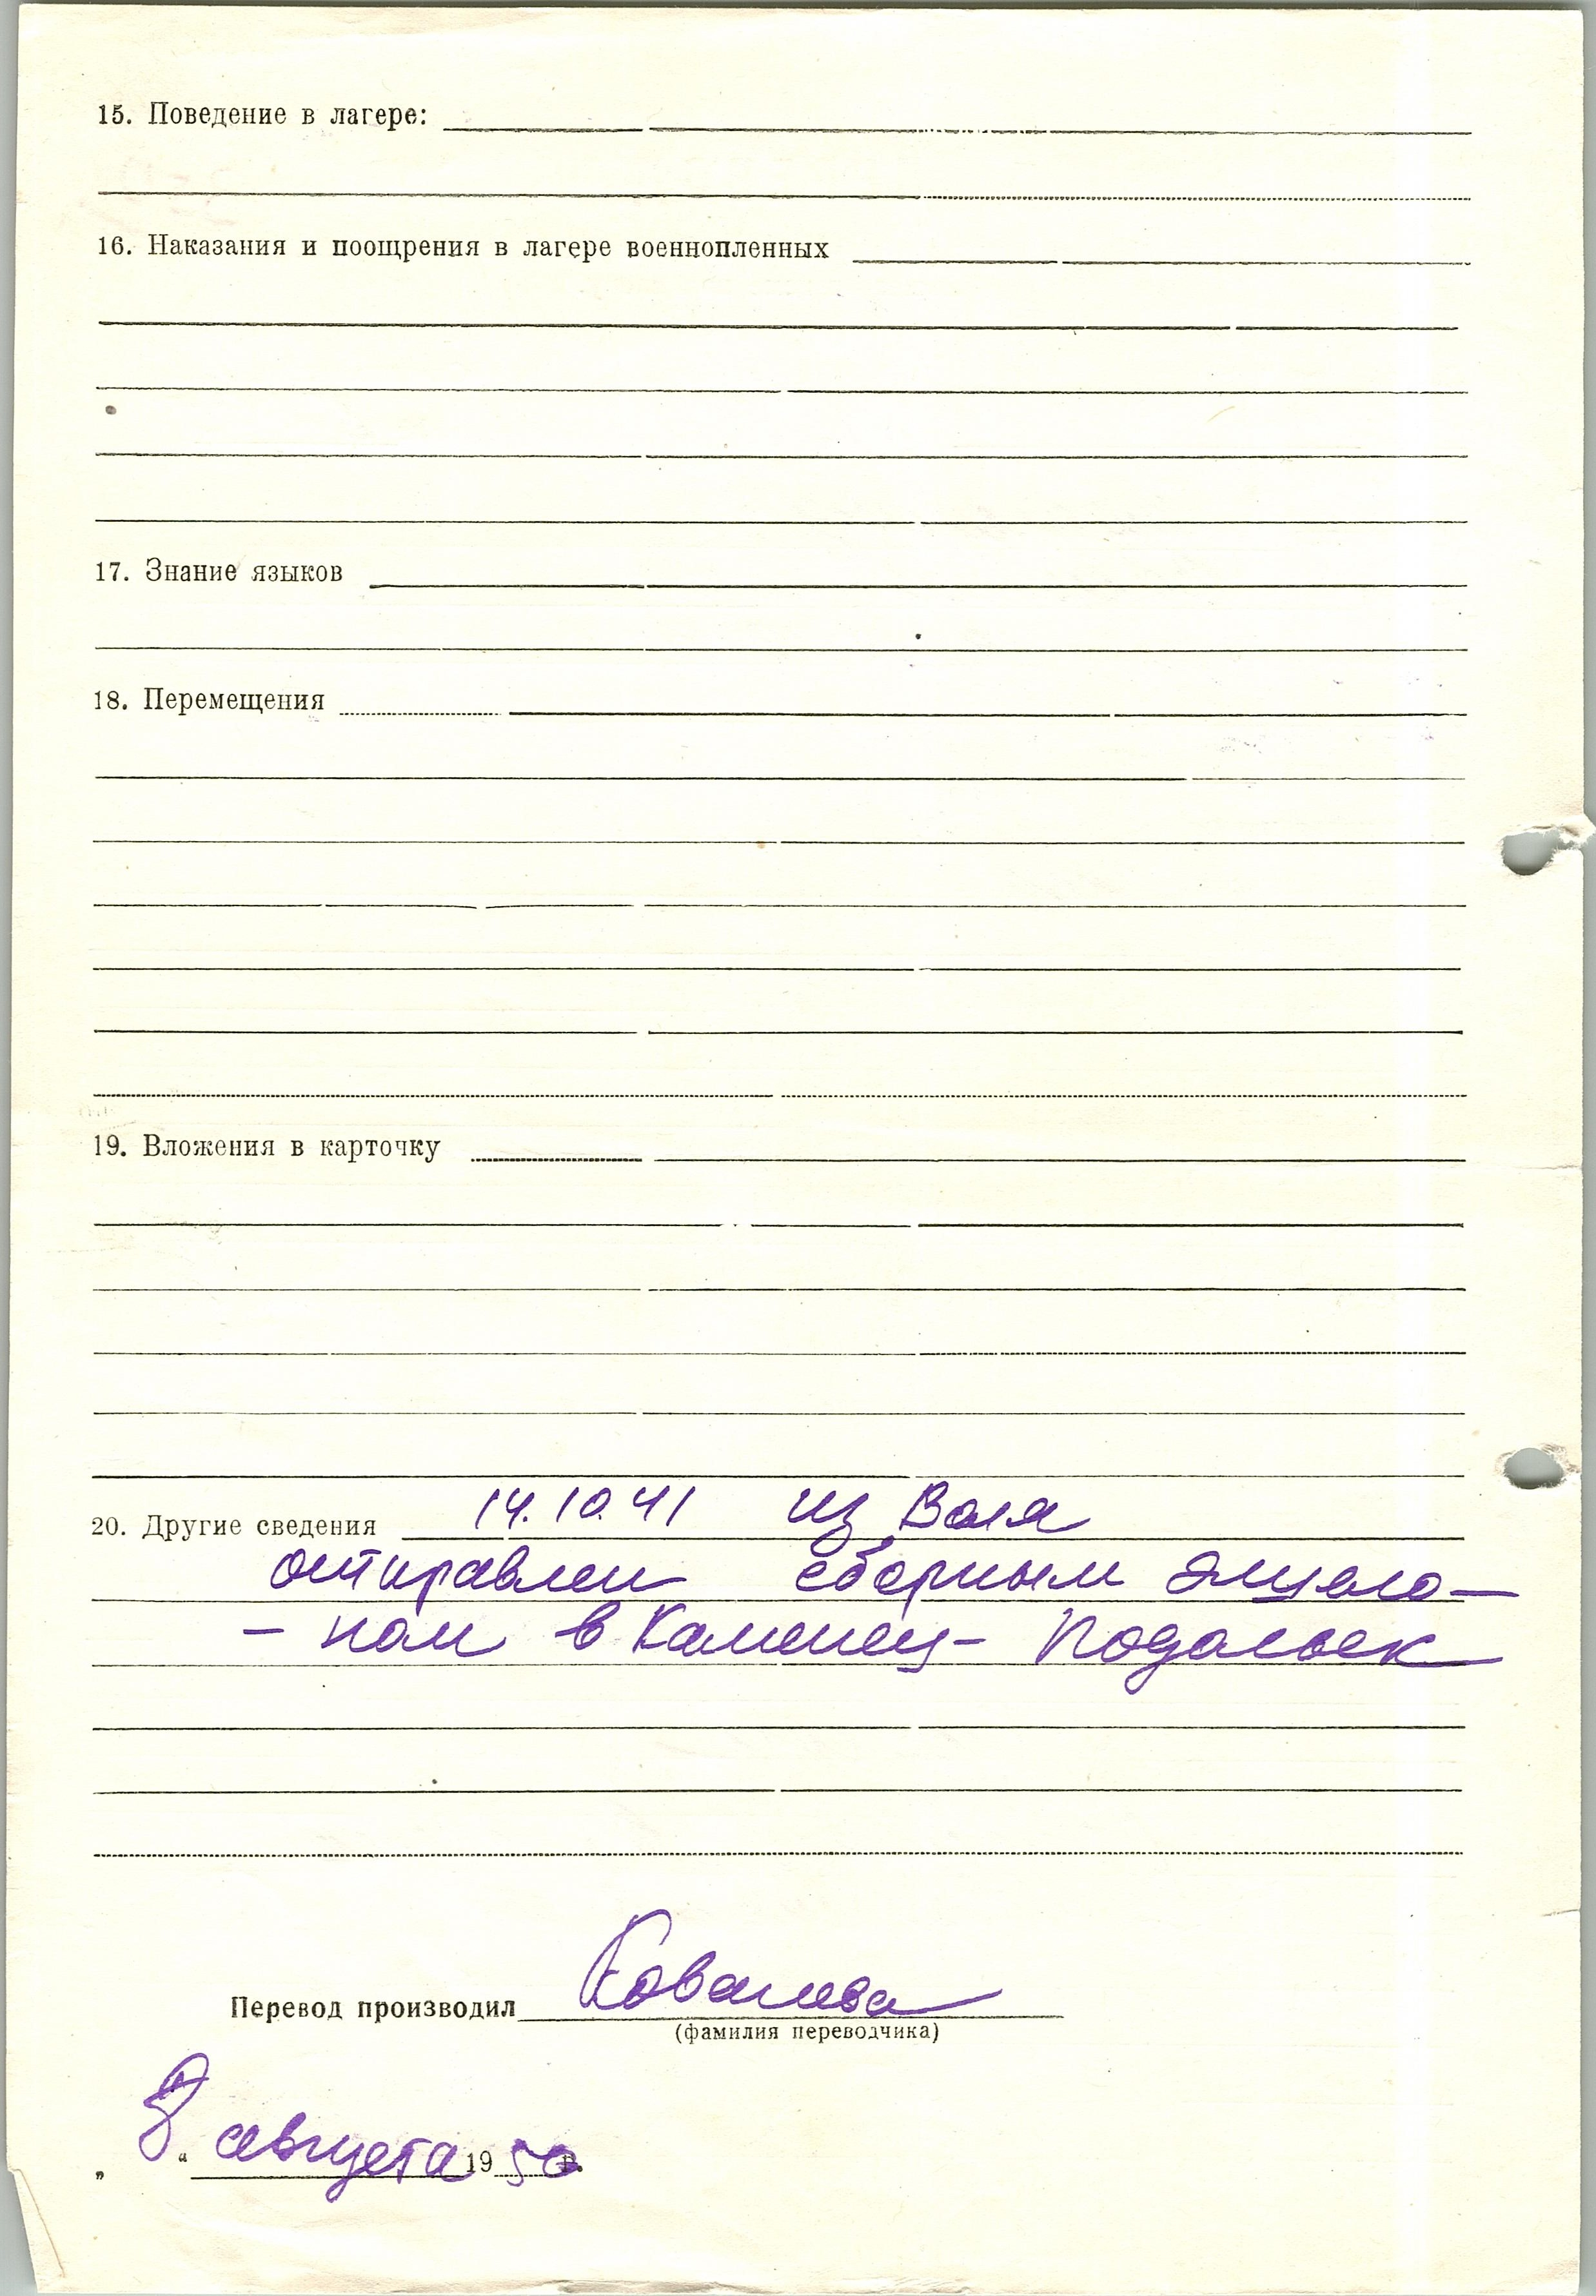 15. Поведение в лагере:
16. Наказания и поощрения в лагере военнопленных
17. Знание языков
18. Перемещения
19. Вложения в карточку
20. Другие сведения 14.10.41 из Воля
отправлен сборным эшело-
- ном в Каменец- Подольск
Перевод производил Ковалева
(фамилия переводчика)
„ 8 “ августа 1950 г.